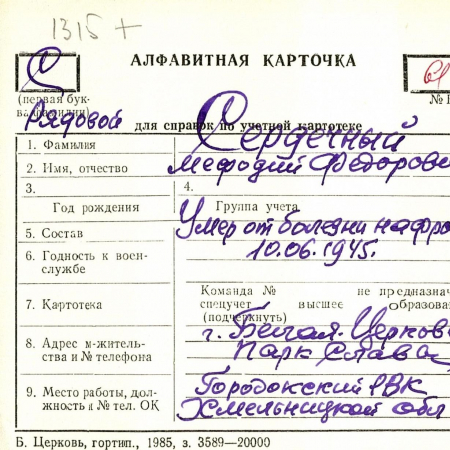 1315 +
АЛФАВИТНАЯ КАРТОЧКА
С
61
(первая бук-
ва фамилии)
№ В
Рядовой
для справок по учетной картотеке
1. Фамилия
Сердечный
2. Имя, отчество
Мефодий Федорови
3.
4.
Год рождения
Группа учета
5. Состав
Умер от болезни на фро
6. Годность к воен-
службе
10.06.1945.
Команда № не предназнач
спецучет высшее образова
(подчеркнуть)
7. Картотека
г. Белая-Церковь
8. Адрес м-житель-
ства и № телефона
Парк Слава
9. Место работы, дол-
жность и № тел. ОК
Городокский РВК
Хмельницкой обл
Б. Церковь, гортип., 1985, з. 3589—20000